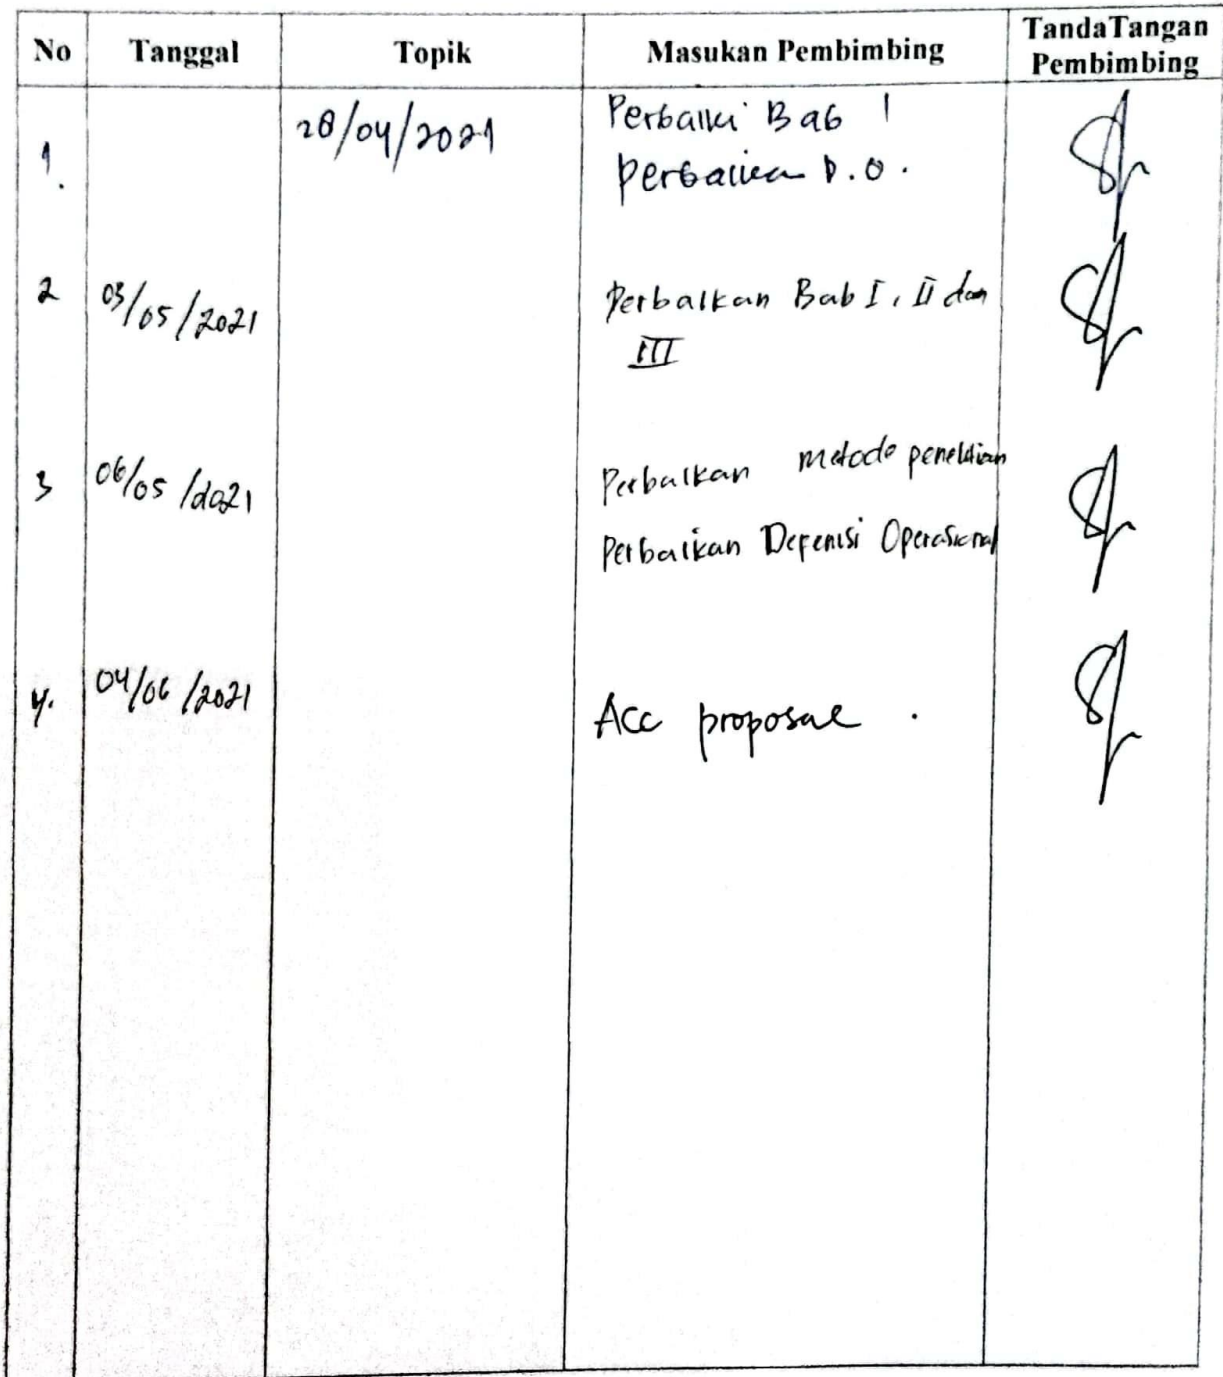 No Tanggal Topik Masukan Pembimbing TandaTangan
Pembimbing
1. 28/04/2021 Perbaiki Bab 1
perbaikan D.O.
2 03/05/2021 Perbaikan Bab I, II dan
III
3 06/05/2021 Perbaikan metode penelitian
Perbaikan Defenisi Operasional
4. 04/06/2021 Acc proposal.